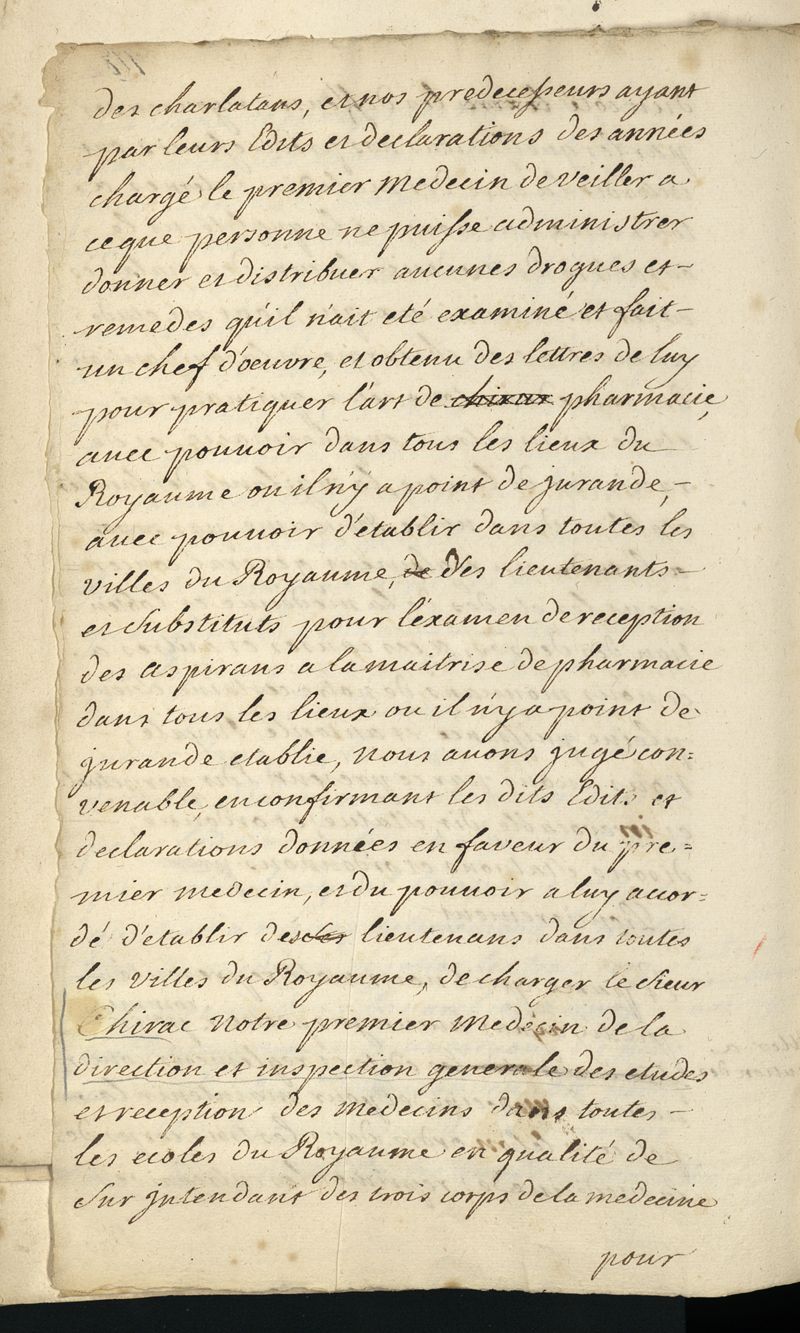 des charlatans, et nos predecesseurs ayant
par leurs Edits et declarations des années
chargé le premier Medecin de veiller a
ce que personne ne puisse administrer
donner et distribuer aucunes drogues et
remedes qu'il n'ait eté examiné et fait
un chef d'oeuvre, et obtenu des lettres de luy
pour pratiquer l'art de chirur pharmacie,
avec pouvoir dans tous les lieux du
Royaume ou il n'y a point de jurande,
avec pouvoir d'etablir dans toutes les
villes du Royaume, de des lieutenants
et substituts pour l'examen de reception
des aspirans a la maitrise de pharmacie
dans tous les lieux ou il n'y a point de
jurande etablie, nous avons jugé con=
venable, en confirmant les dits Edits et
declarations données en faveur du pre=
mier medecin, et du pouvoir a luy accor=
dé d'etablir des lieutenans dans toutes
les villes du Royaume, de charger le sieur
Chirac notre premier Medecin de la
direction et inspection generale des etudes
et reception des medecins dans toutes
les ecoles du Royaume en qualité de
Sur jntendant des trois corps de la medecine
pour